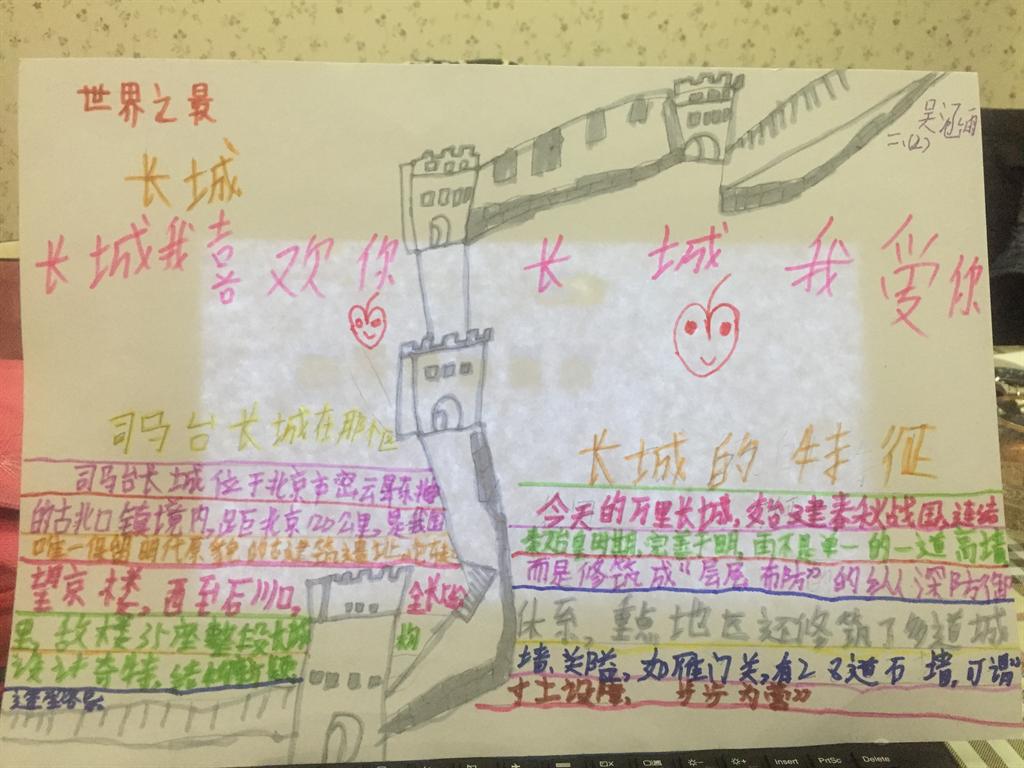 世界之最
吴涵
二、(2)
长城
长城我喜欢你
长城我爱你
司马台长城在那
司马台长城位于北京市密云县东北
的古北口镇境内,距北京120公里,是我国
唯一保留明代原貌的古建筑遗址
望京楼,西到石川口,全长
里,敌楼 座整段长城构
设计奇特,结构
长城的特征
今天的万里长城,始建春秋战国,连结
秦始皇时期,完善于明,而不是单一的一道高墙
而是修筑成“层层布防”的纵深防御
体系,重点地区还修筑了多道城
墙、关隘,如雁门关,有28道石墙,可谓“
寸土设障, 步步为营”
Insert PrtSc Delete